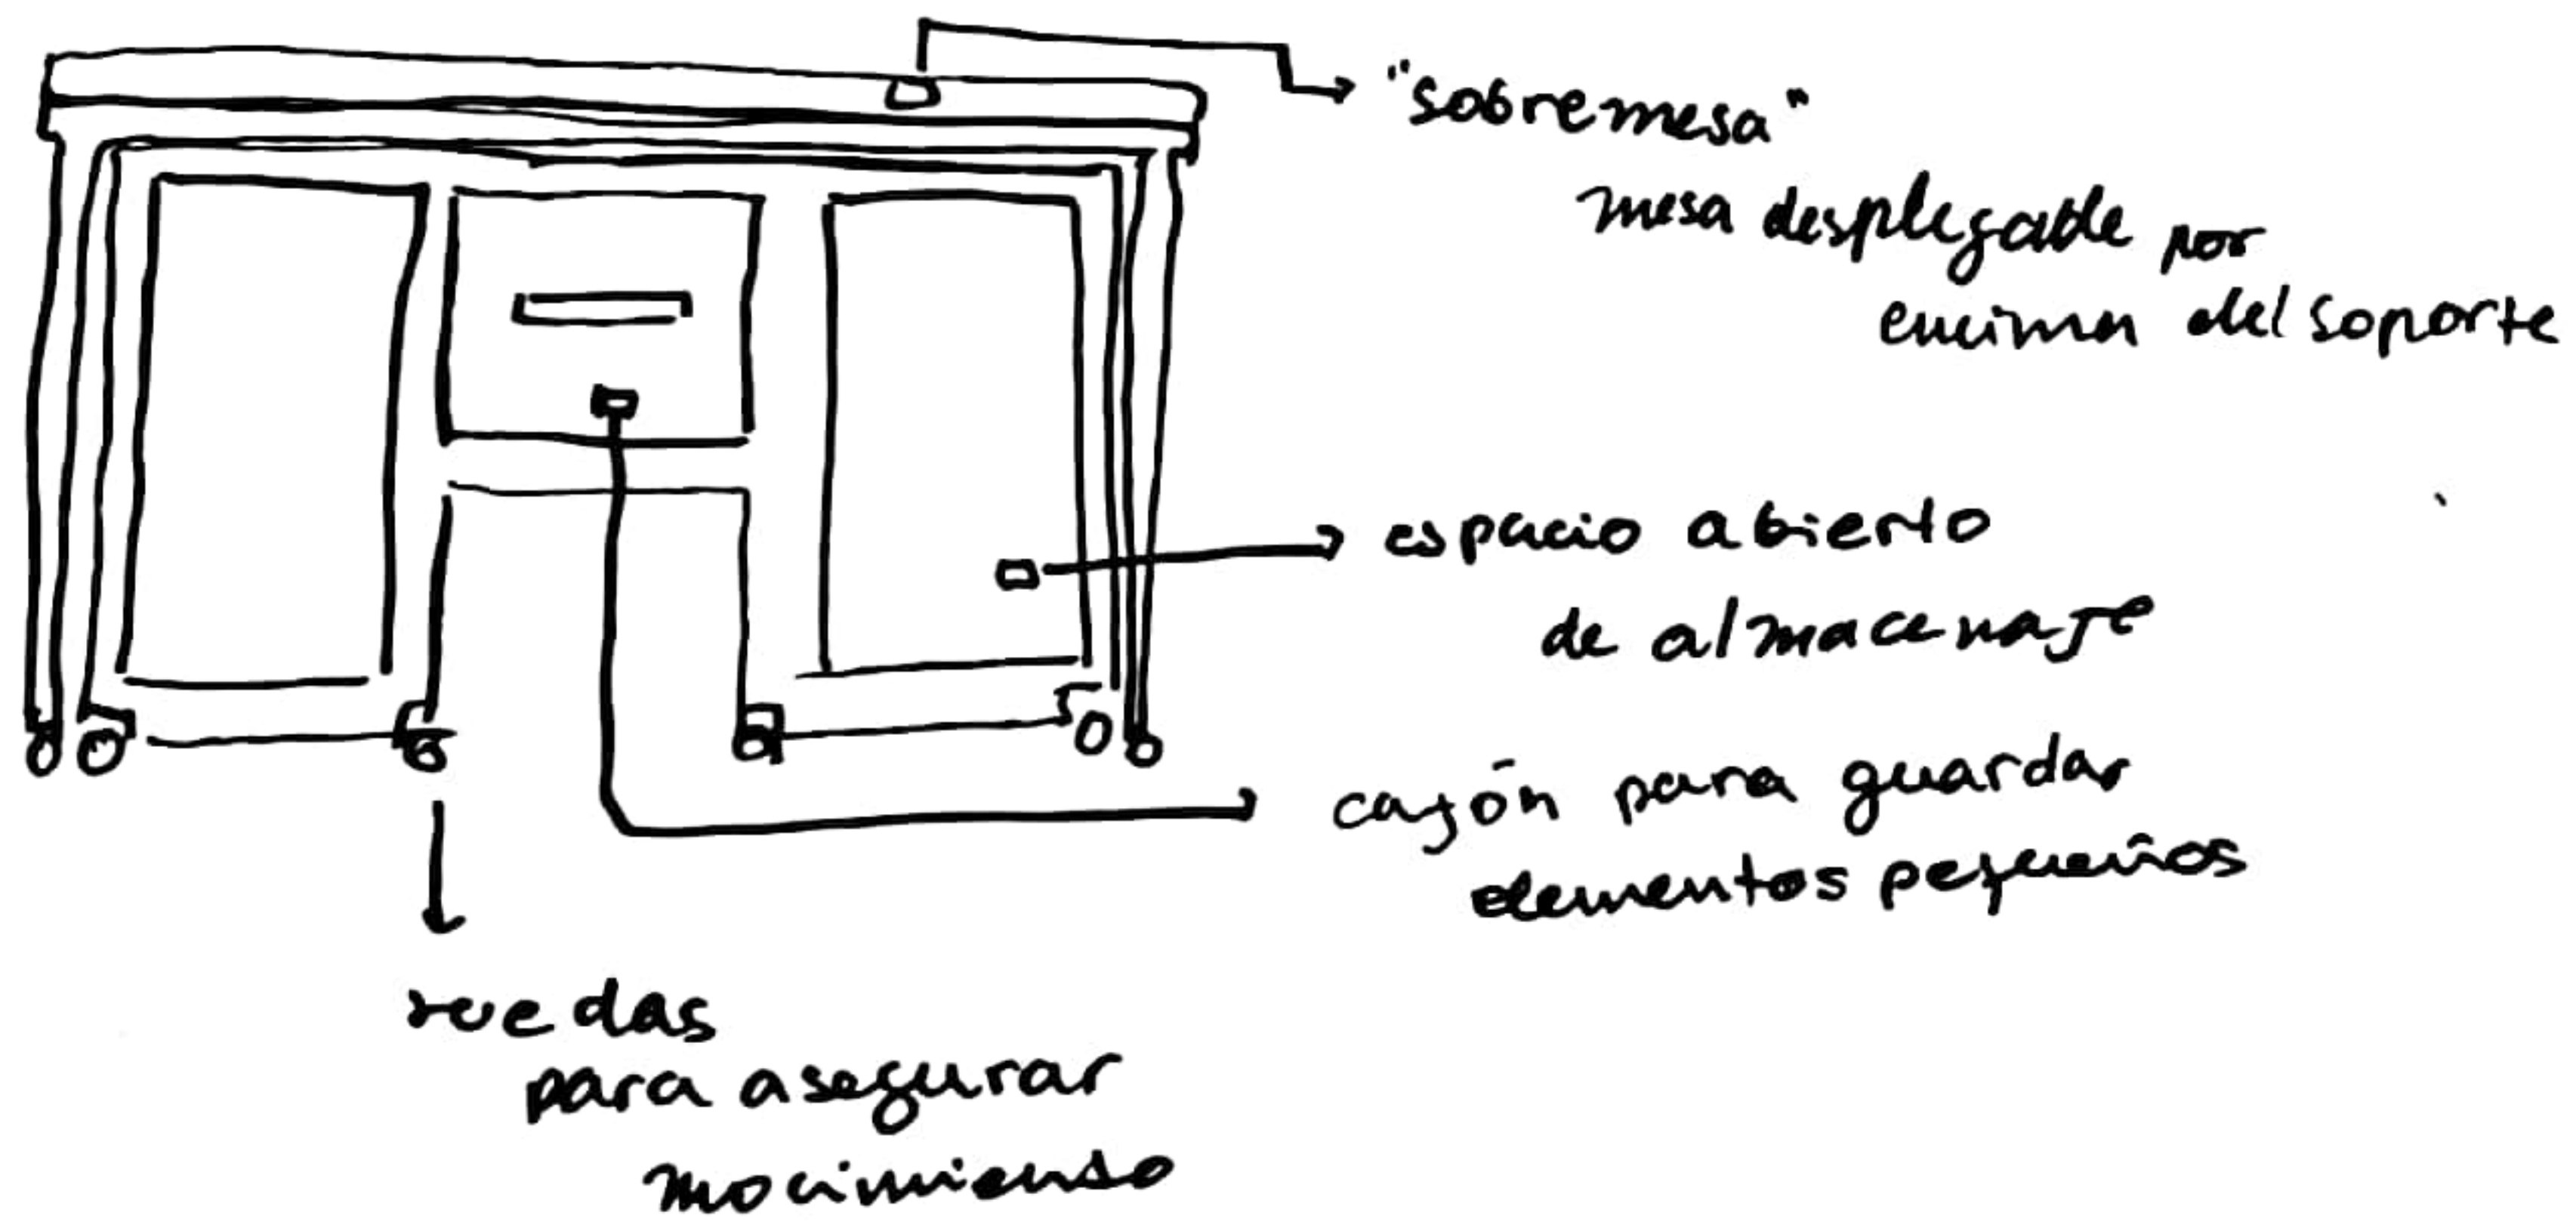 "sobremesa"
mesa desplegable por
encima del soporte
espacio abierto
de almacenaje
cajón para guardar
elementos pequeños
ruedas
para asegurar
movimiento